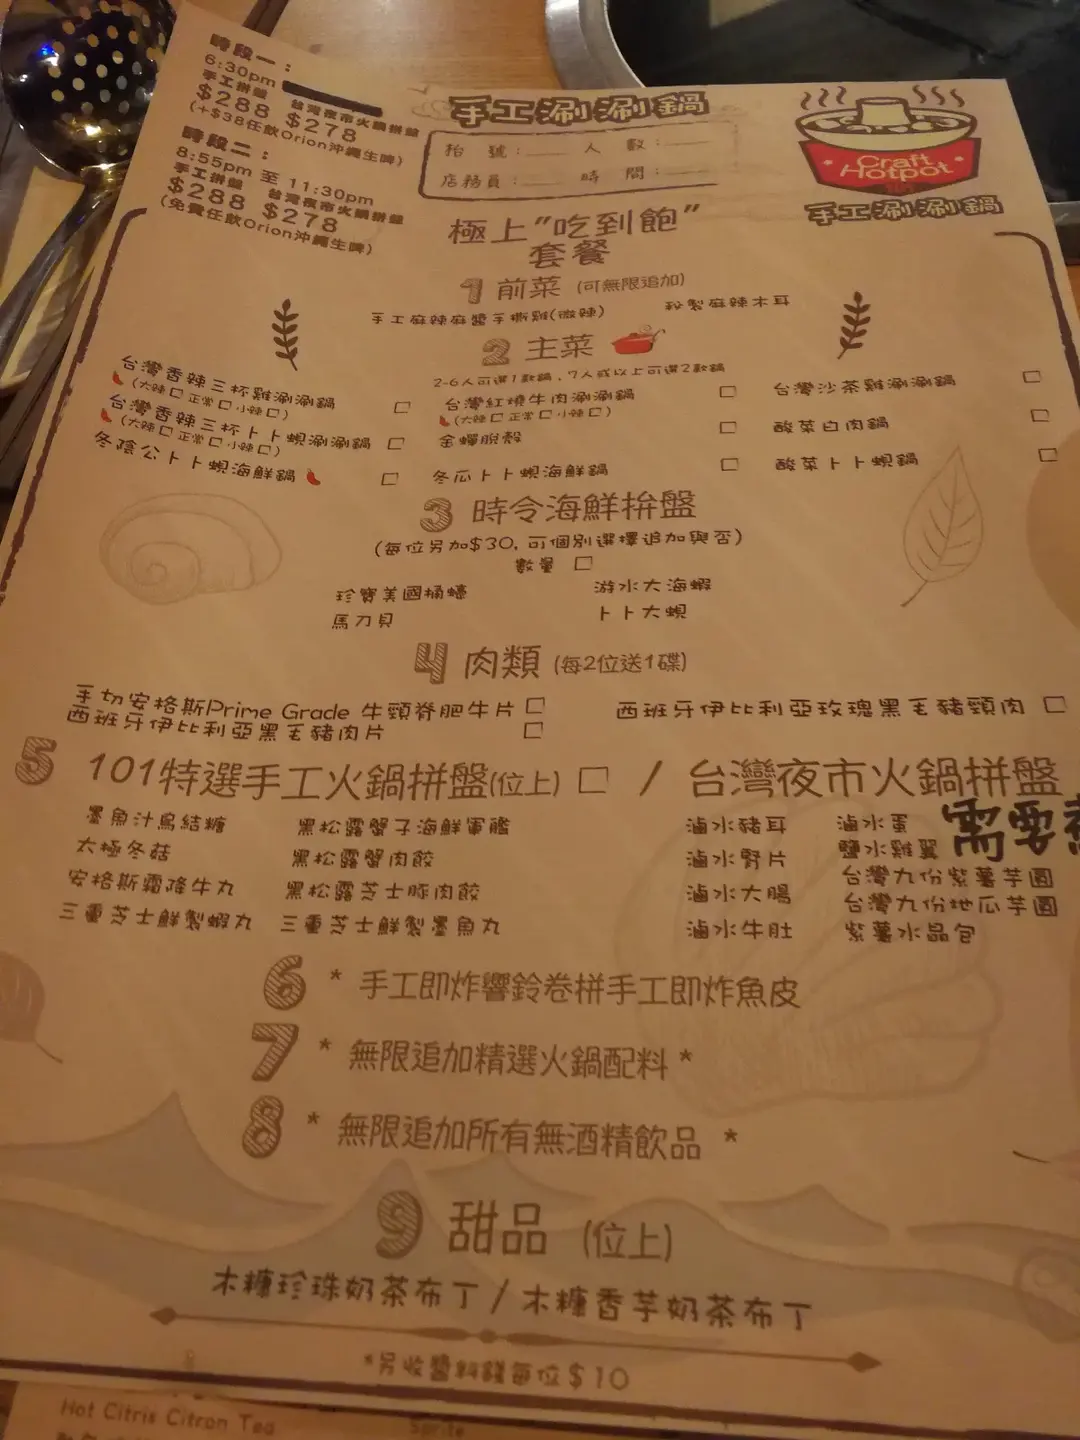 時段一：
6:30pm
手工拼盤 台灣夜市火鍋拼盤
$288 $278
(+$38任飲Orion沖繩生啤)
時段二：
8:55pm 至 11:30pm
手工拼盤 台灣夜市火鍋拼盤
$288 $278
(免費任飲Orion沖繩生啤)
手工涮涮鍋
枱 號：____ 人 數：____
店務員：____ 時 間：____
Craft
Hotpot
手工涮涮鍋
極上"吃到飽"
套餐
1 前菜 (可無限追加)
手工麻辣麻醬手撕雞(微辣) 秘製麻辣木耳
2 主菜
2-6人可選1款鍋，7人或以上可選2款鍋
台灣香辣三杯雞涮涮鍋 □ 台灣紅燒牛肉涮涮鍋 □ 台灣沙茶雞涮涮鍋 □
(大辣□ 正常□ 小辣□) (大辣□ 正常□ 小辣□)
台灣香辣三杯卜卜蜆涮涮鍋 □ 金蟬脫殼 □ 酸菜白肉鍋 □
(大辣□ 正常□ 小辣□)
冬陰公卜卜蜆海鮮鍋 □ 冬瓜卜卜蜆海鮮鍋 □ 酸菜卜卜蜆鍋 □
3 時令海鮮拚盤
(每位另加$30, 可個別選擇追加與否)
數量 □
珍寶美國桶蠔 游水大海蝦
馬刀貝 卜卜大蜆
4 肉類 (每2位送1碟)
手切安格斯Prime Grade 牛頸脊肥牛片 □ 西班牙伊比利亞玫瑰黑毛豬頸肉 □
西班牙伊比利亞黑毛豬肉片 □
5 101特選手工火鍋拼盤(位上) □ / 台灣夜市火鍋拼盤
需要
墨魚汁烏結糖 黑松露蟹子海鮮軍艦 滷水豬耳 滷水蛋
太極冬菇 黑松露蟹肉餃 滷水腎片 鹽水雞翼
安格斯霜降牛丸 黑松露芝士豚肉餃 滷水大腸 台灣九份紫薯芋圓
三重芝士鮮製蝦丸 三重芝士鮮製墨魚丸 滷水牛肚 台灣九份地瓜芋圓
紫薯水晶包
6 * 手工即炸響鈴卷拼手工即炸魚皮
7 * 無限追加精選火鍋配料 *
8 * 無限追加所有無酒精飲品 *
9 甜品 (位上)
木糖珍珠奶茶布丁 / 木糖香芋奶茶布丁
*另收醬料錢每位$10
Hot Citris Citron Tea Sprite